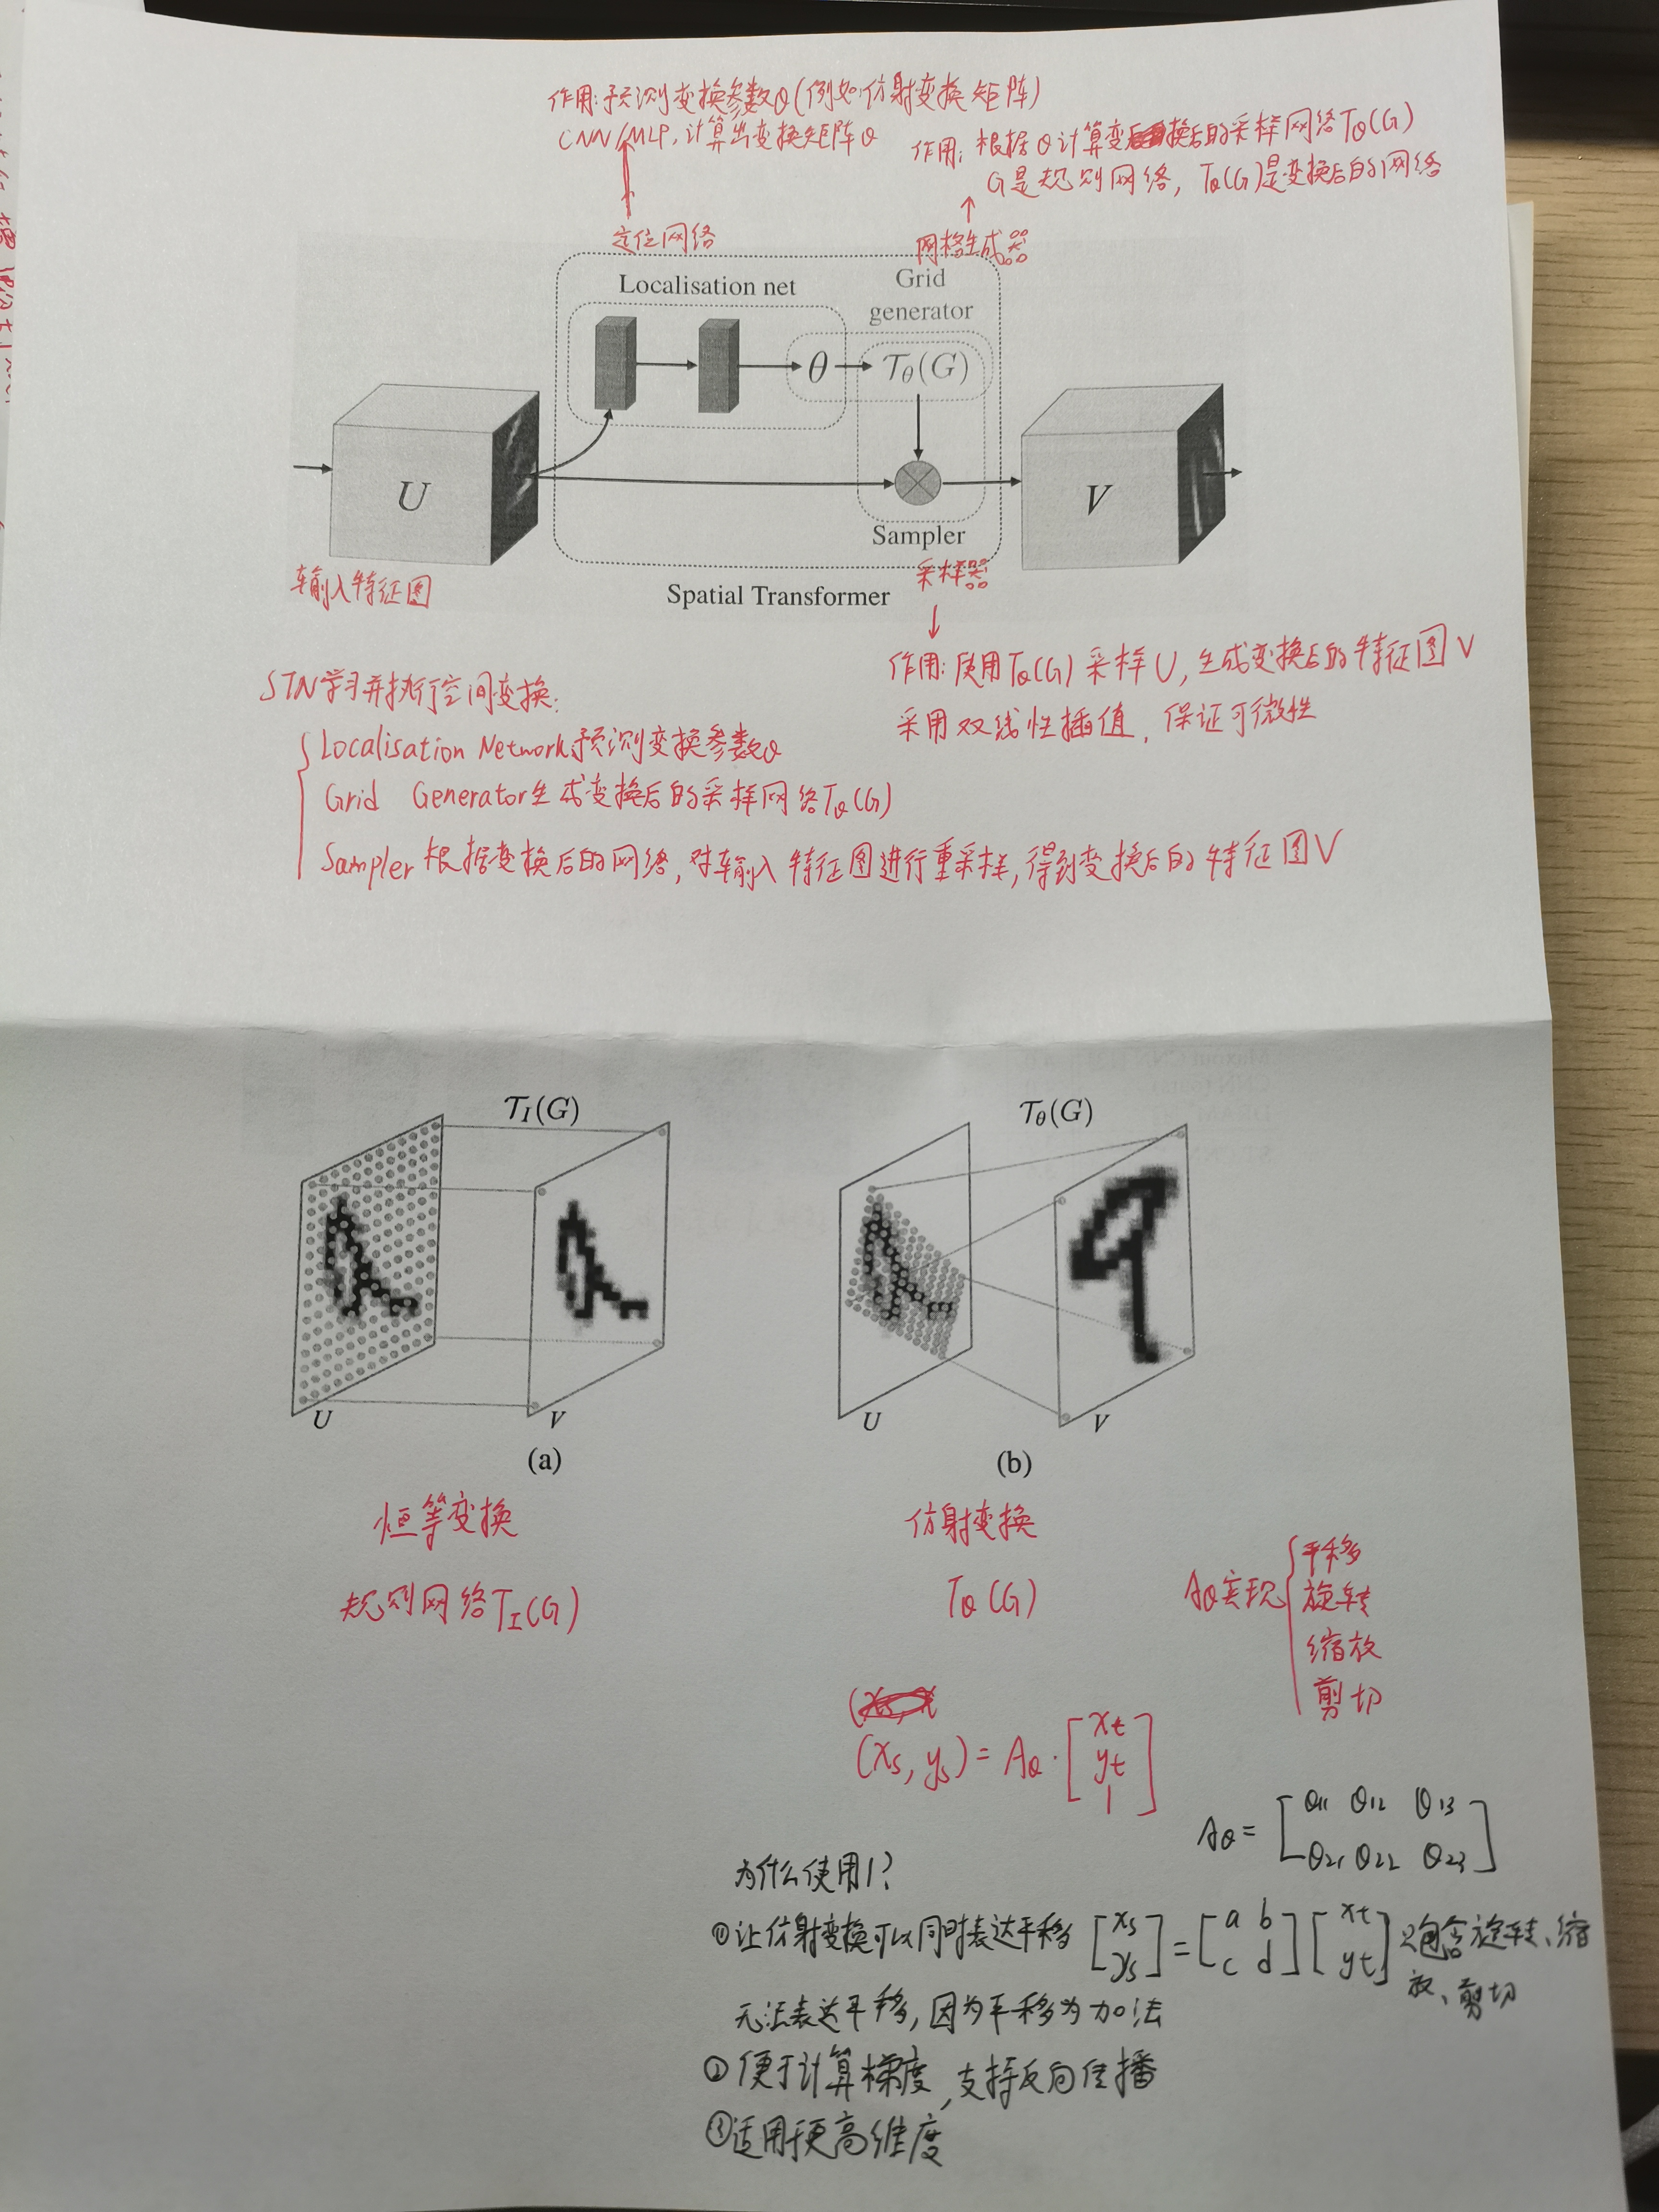 作用:预测变换参数θ(例如仿射变换矩阵)
CNN/MLP,计算出变换矩阵θ
作用:根据θ计算变换后的采样网络Tθ(G)
G是规则网络,Tθ(G)是变换后的网络
定位网络
网格生成器
Localisation net
Grid
generator
θ
Tθ(G)
U
V
Sampler
采样器
输入特征图
Spatial Transformer
作用:使用Tθ(G)采样U,生成变换后的特征图V
采用双线性插值,保证可微性
STN学习并执行空间变换:
Localisation Network预测变换参数θ
Grid Generator生成变换后的采样网络Tθ(G)
Sampler根据变换后的网络,对输入特征图进行重采样,得到变换后的特征图V
T_I(G)
Tθ(G)
U
V
U
V
(a)
(b)
恒等变换
仿射变换
规则网络T_I(G)
Tθ(G)
Aθ实现
平移
旋转
缩放
剪切
(xs, ys) = Aθ · [xt yt 1]
Aθ = [θ11 θ12 θ13
θ21 θ22 θ23]
为什么使用1?
①让仿射变换可以同时表达平移 [xs ys] = [a b c d] [xt yt] 只包含旋转、缩
放、剪切
无法表达平移,因为平移为加法
②便于计算梯度,支持反向传播
③适用于更高维度